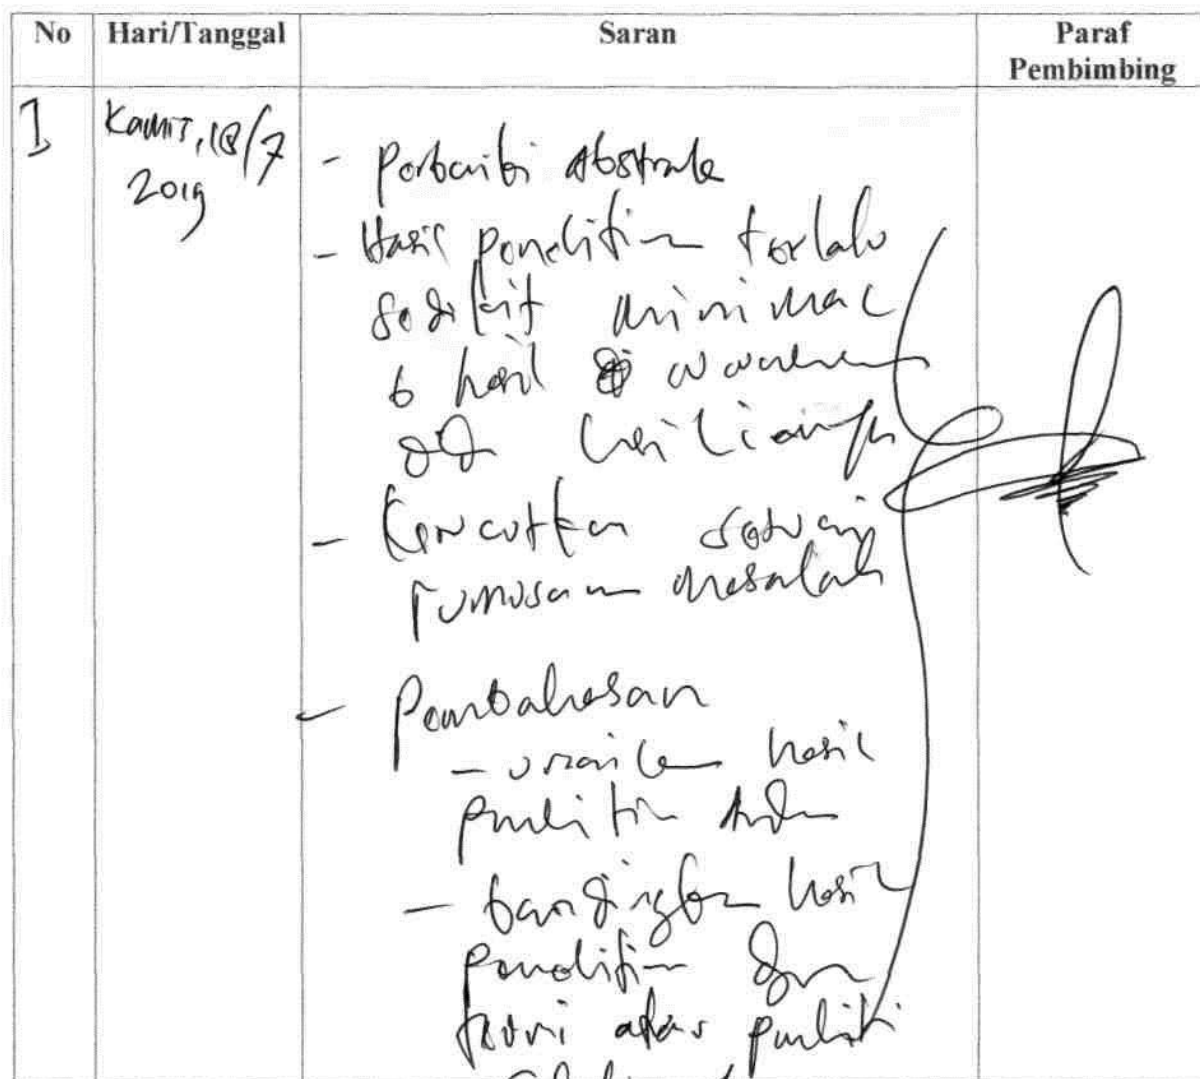 No Hari/Tanggal Saran Paraf
Pembimbing
1 Kamis, 18/7
2019
- Perbaiki Abstrak
- Hasil penelitian terlalu
sedikit minimal
6 hasil wawancara
- Kerucutkan sesuai
rumusan masalah
- Pembahasan
- uraikan hasil
penelitian Anda
- bandingkan hasil
penelitian dgn
teori atau peneliti